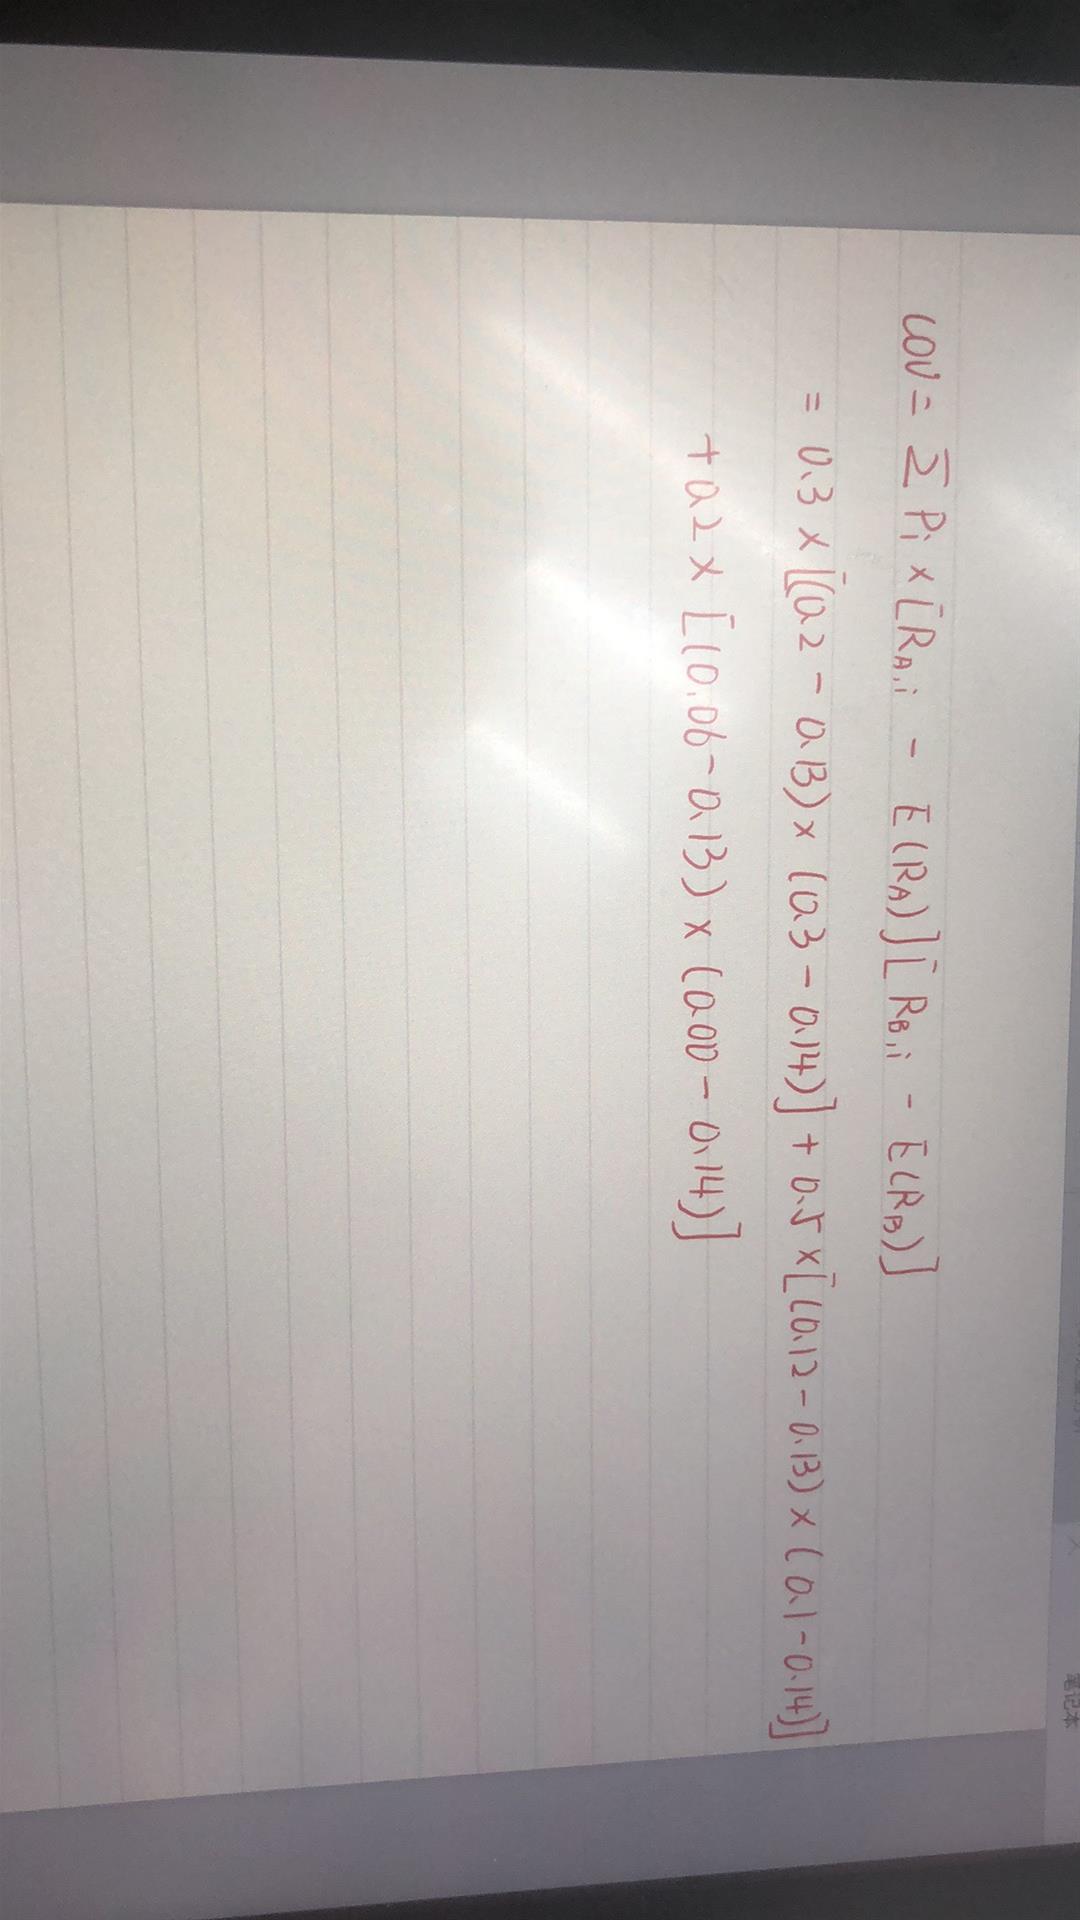 COV = Σ Pi × [RA,i − E(RA)][RB,i − E(RB)]
= 0.3 × [(0.2 − 0.13) × (0.3 − 0.14)] + 0.5 × [(0.12 − 0.13) × (0.1 − 0.14)]
+ 0.2 × [(0.06 − 0.13) × (0.00 − 0.14)]
笔记本